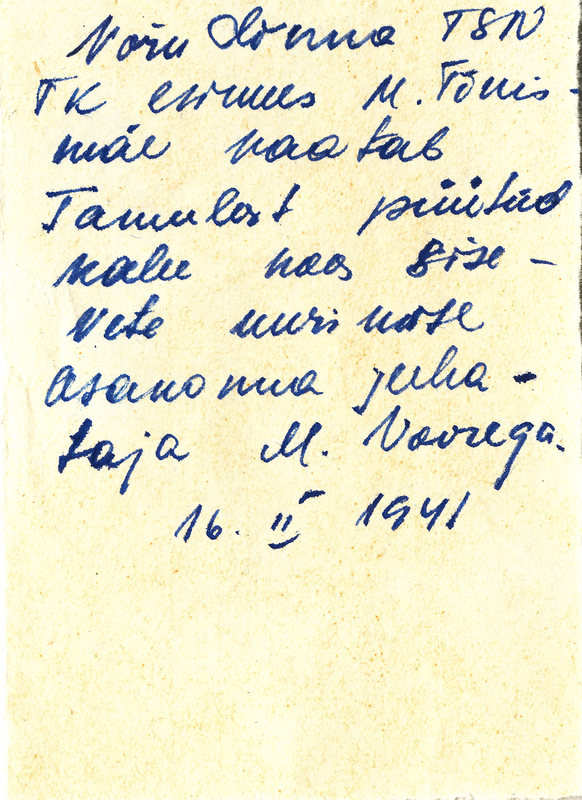 Võru Linna TSN
TK esimees M. Tõnis-
mäe vaatab
Tamulast püütud
kalu koos Sise-
vete uurimise
osakonna juha-
taja M. Voorega.
16. II 1941